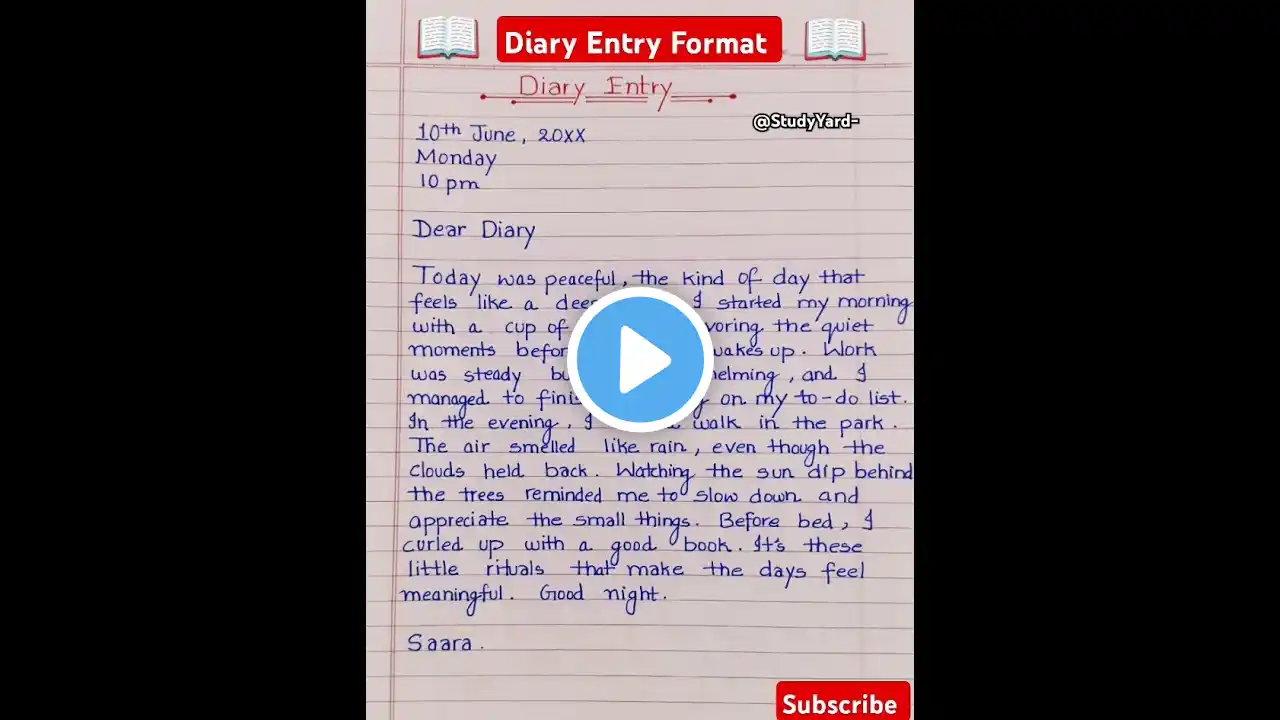 Diary Entry Format
Diary Entry
@StudyYard-
10th June, 20XX
Monday
10 pm
Dear Diary
Today was peaceful, the kind of day that
feels like a I started my morning
with a cup of the quiet
moments up. Work
was steady and I
managed to on my to-do list.
In the evening, I walk in the park.
The air smelled like rain, even though the
clouds held back. Watching the sun dip behind
the trees reminded me to slow down and
appreciate the small things. Before bed, I
curled up with a good book. It's these
little rituals that make the days feel
meaningful. Good night.
Saara.
Subscribe